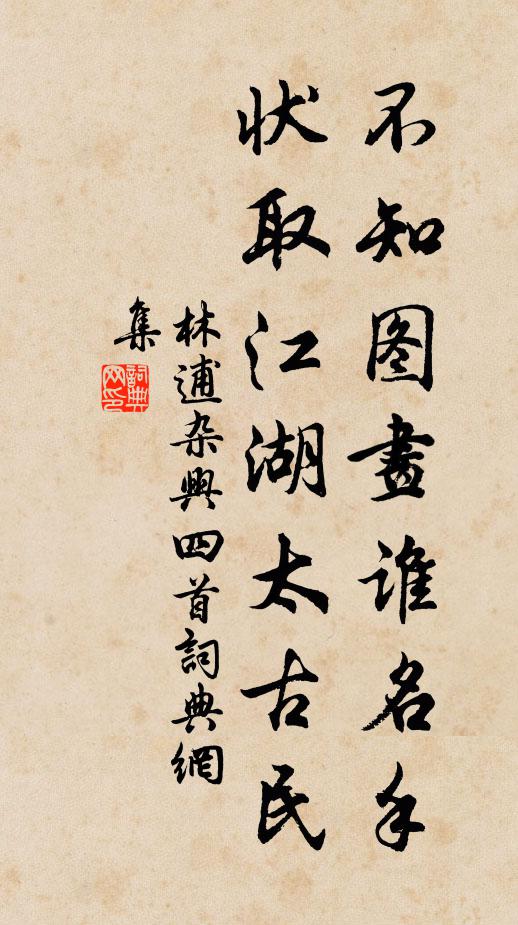 不知图畫谁名手
状取江湖太古民
林逋杂興四首詞典網
集
詞典
网印